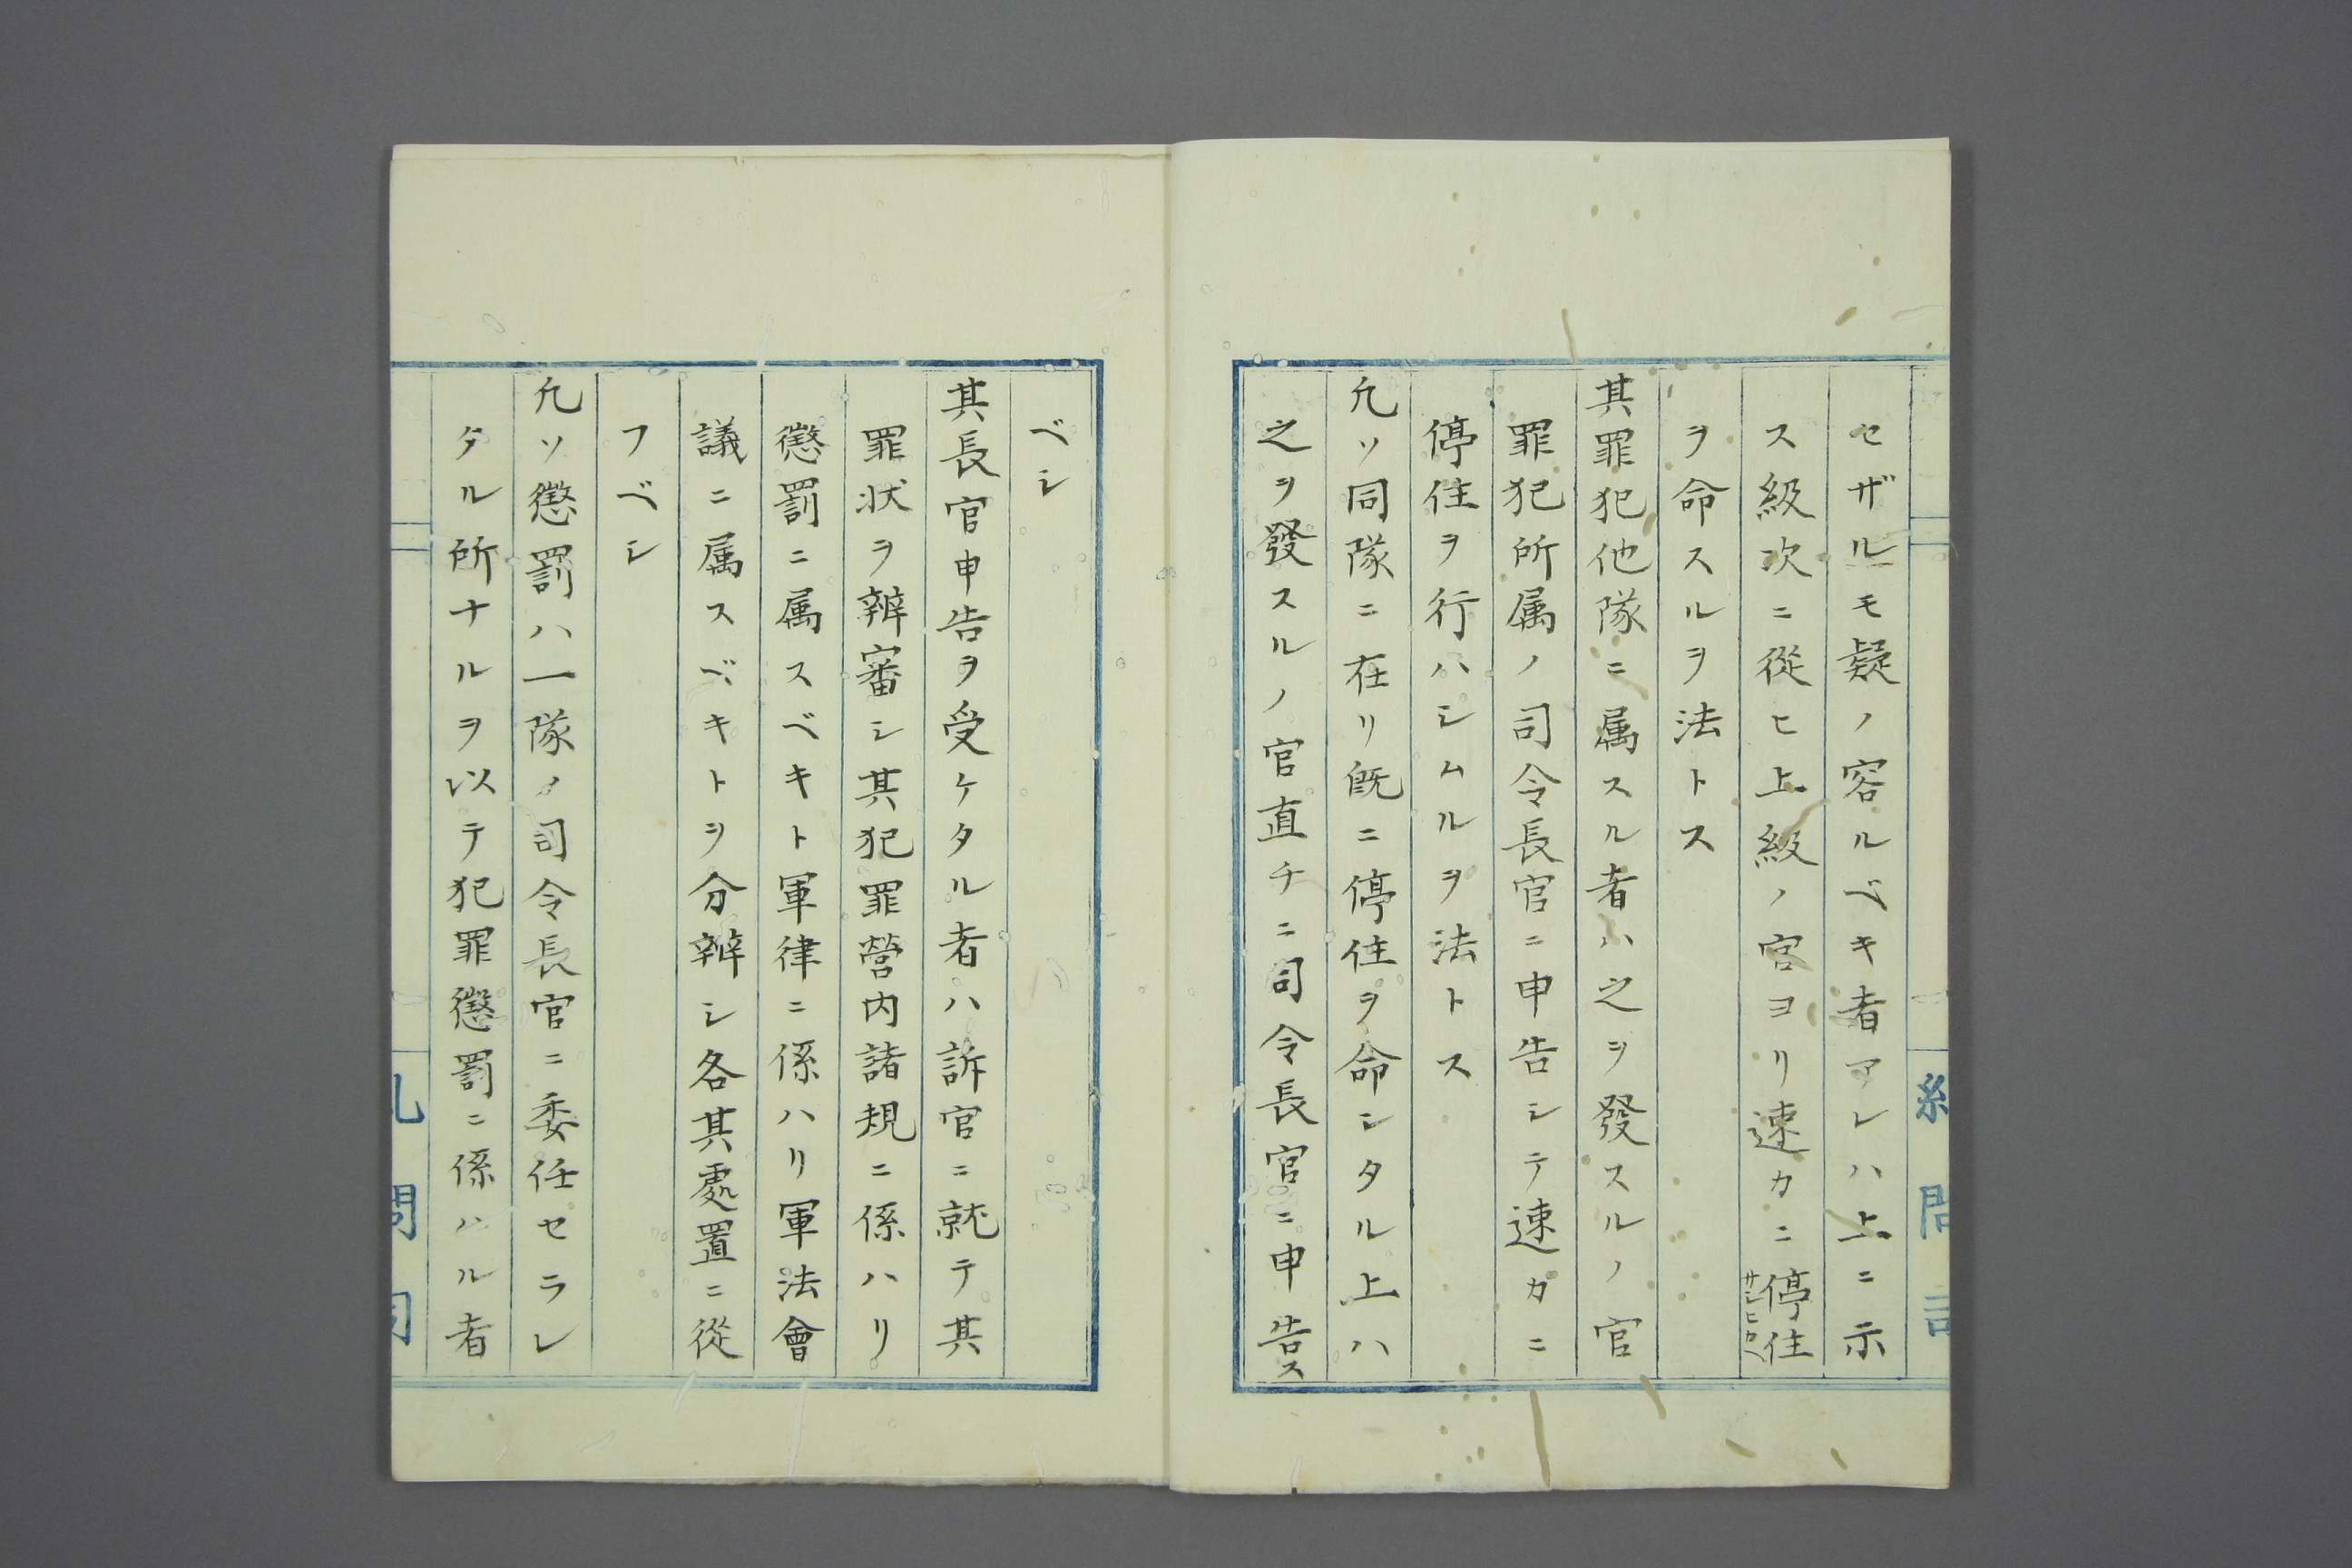 セザルモ疑ノ容ルベキ者アレハ上ニ示
ス級次ニ從ヒ上級ノ官ヨリ速カニ停住
サシヒカヘ
ヲ命スルヲ法トス
其罪犯他隊ニ属スル者ハ之ヲ發スルノ官
罪犯所属ノ司令長官ニ申告シテ速カニ
停住ヲ行ハシムルヲ法トス
凢ソ同隊ニ在リ既ニ停住ヲ命シタル上ハ
之ヲ發スルノ官直チニ司令長官ニ申告ス
ベシ
其長官申告ヲ受ケタル者ハ訴官ニ就テ其
罪状ヲ辨審シ其犯罪營内諸規ニ係ハリ
懲罰ニ属スベキト軍律ニ係ハリ軍法會
議ニ属スベキトヲ分辨シ各其處置ニ從
フベシ
凢ソ懲罰ハ一隊ノ司令長官ニ委任セラレ
タル所ナルヲ以テ犯罪懲罰ニ係ハル者